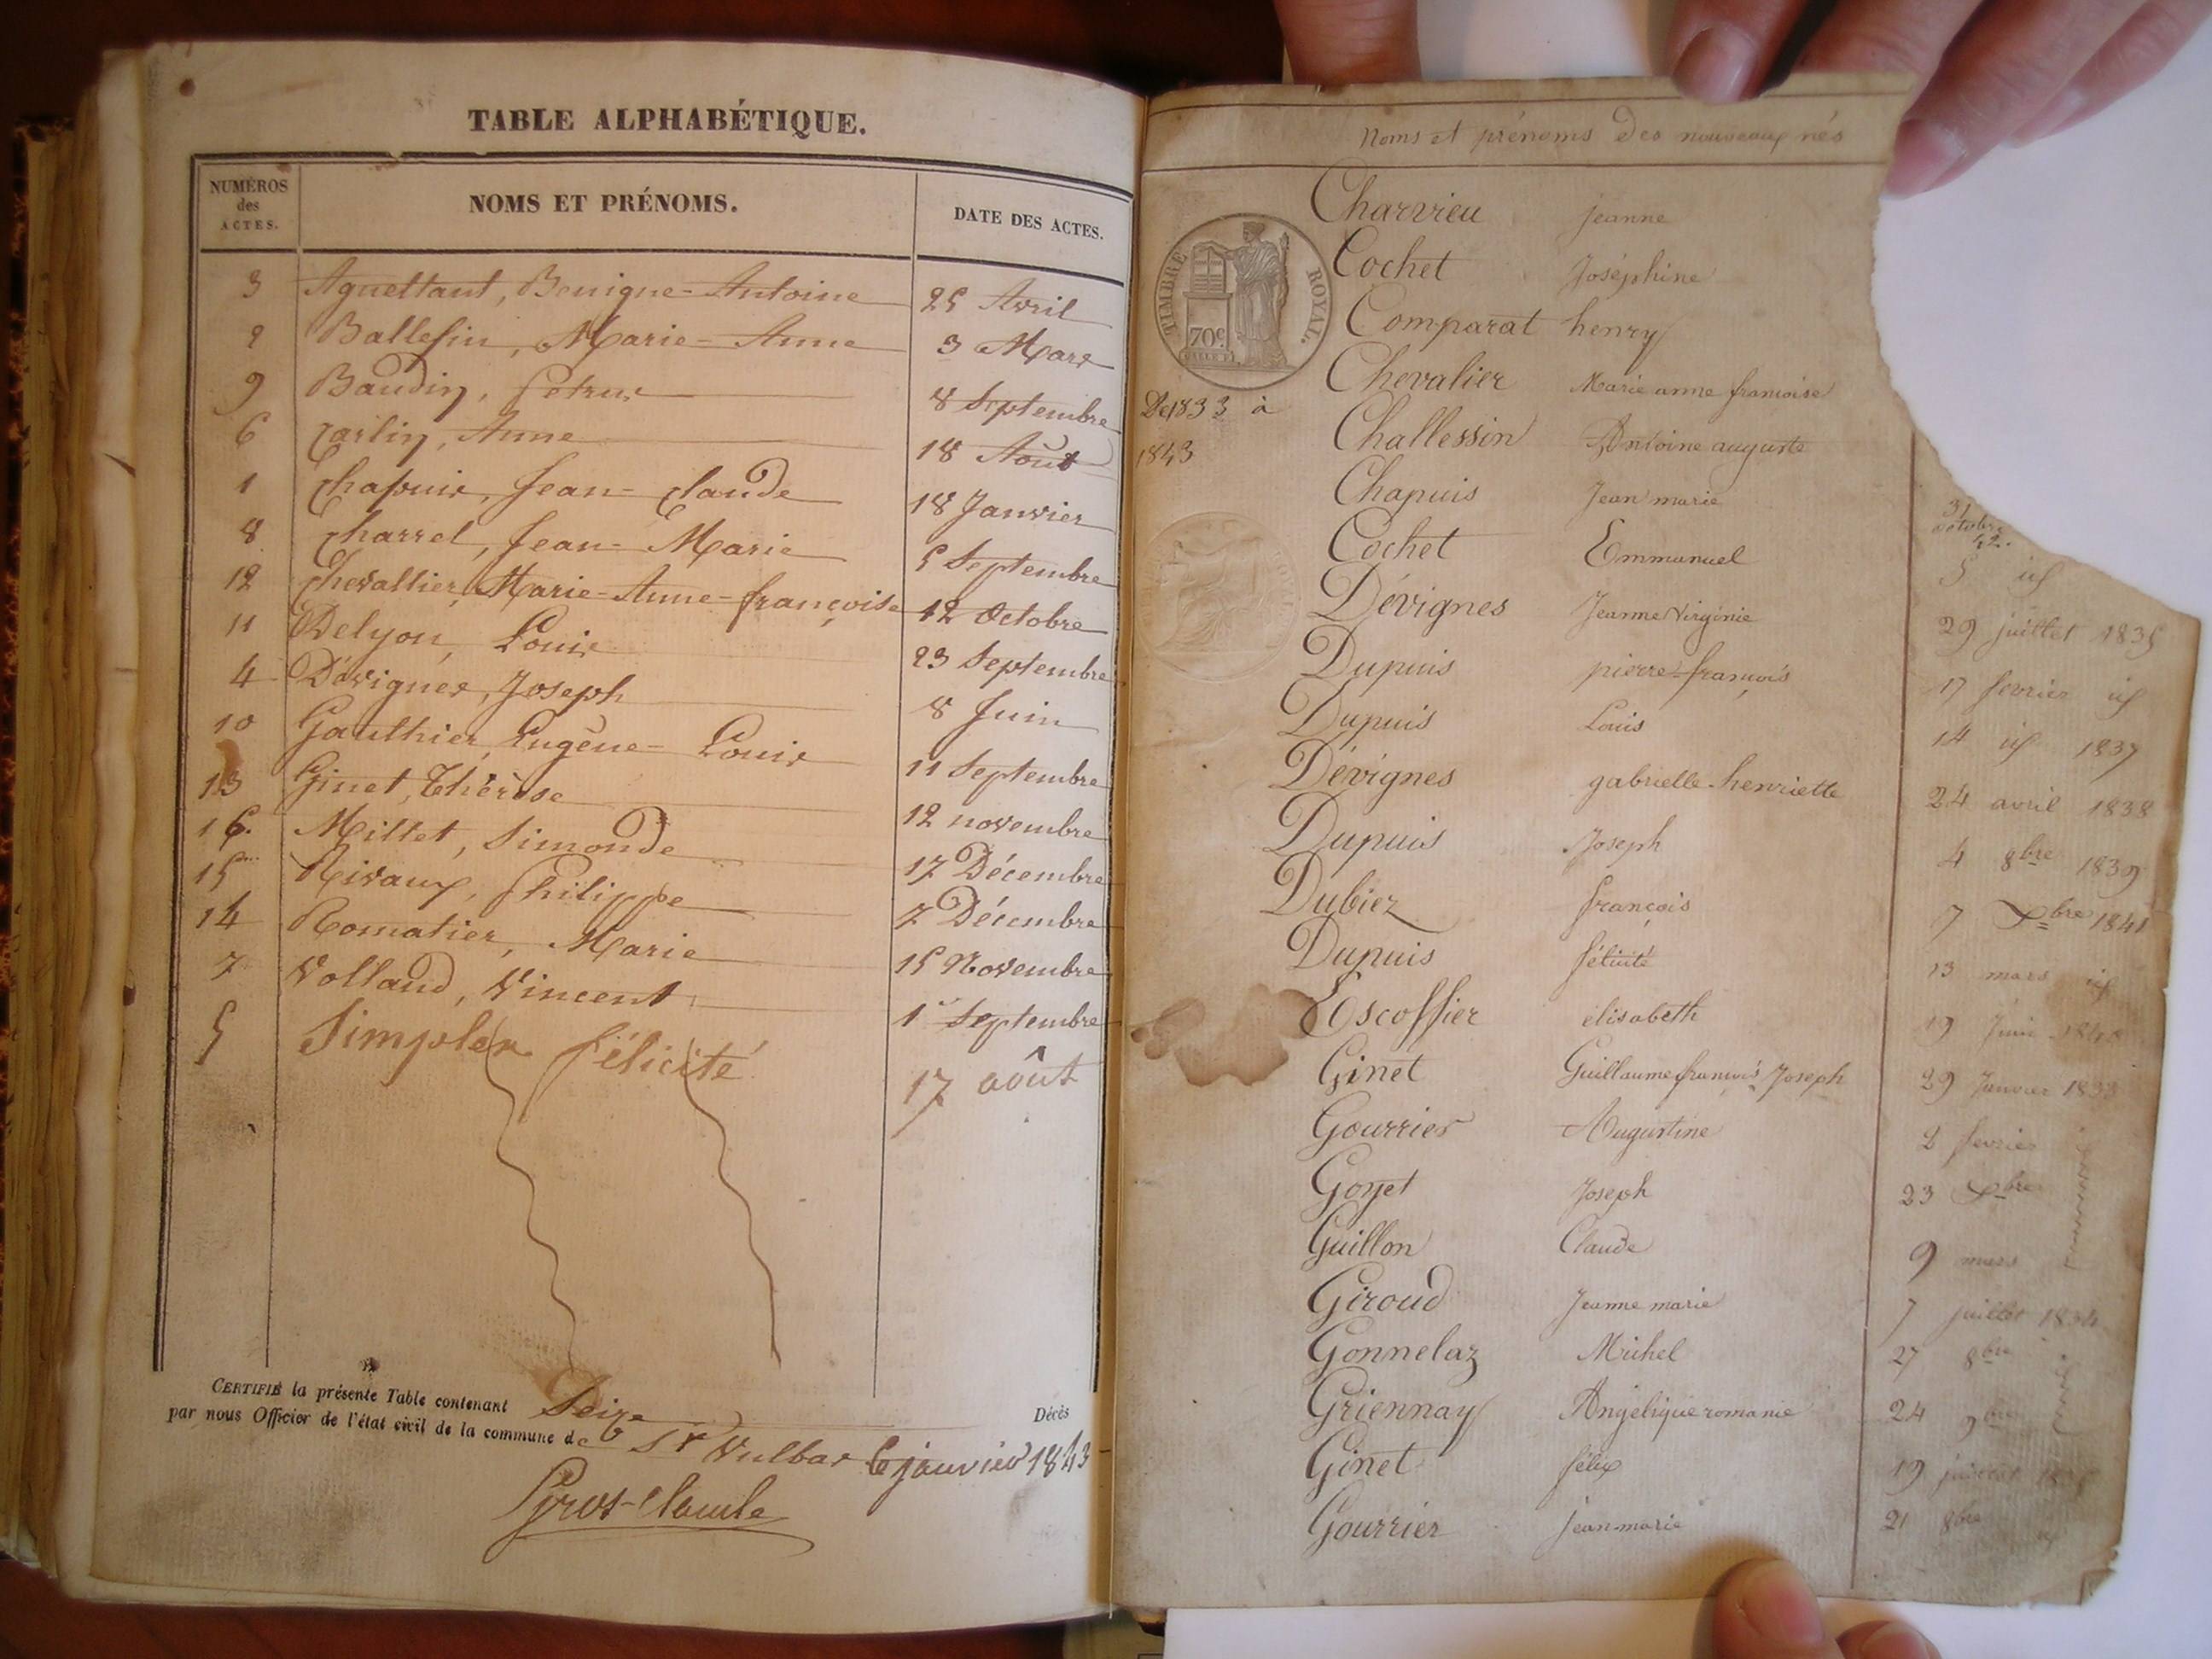 TABLE ALPHABÉTIQUE.
NUMÉROS des ACTES. NOMS ET PRÉNOMS. DATE DES ACTES.
3 Aguettant, Benigne-Antoine 25 Avril
2 Ballesin, Marie-Anne 3 Mars
9 Baudin, Petrus 8 Septembre
6 Carlin, Anne 18 Août
1 Chapuis, Jean-Claude 18 Janvier
8 Charrel, Jean-Marie 5 Septembre
12 Chevallier, Marie-Anne-françoise 12 Octobre
11 Delyon, Louis 23 Septembre
4 Dévignes, Joseph 8 Juin
10 Gauthier, Eugène-Louis 11 Septembre
13 Ginet, Thérèse 12 novembre
16. Millet, Simonde 17 Décembre
15 Rivaux, Philippe 7 Décembre
14 Romatier, Marie 15 Novembre
7 Volland, Vincent 1er Septembre
5 Simpler félicité 17 août
CERTIFIÉ la présente Table contenant Seize Décès
par nous Officier de l'état civil de la commune de St Vulbas 6 janvier 1843
Gros-Claude
Noms et prénoms des nouveaux nés
TIMBRE ROYAL.
70c.
De 1833 à
1843
Charvieu jeanne
Cochet Joséphine
Comparat henry
Chevalier Marie anne francoise
Challessin Antoine auguste
Chapuis Jean marie 31 octobre 42.
Cochet Emmanuel 5 id
Dévignes Jeanne Virginie 29 juillet 1835
Dupuis pierre-françois 17 fevrier id
Dupuis Louis 14 id 1837
Dévignes gabrielle-henriette 24 avril 1838
Dupuis Joseph 4 8bre 1839
Dubiez françois 7 Xbre 1841
Dupuis félicité 13 mars id
Escoffier élisabeth 19 Juin
Ginet Guillaume françois Joseph 29 Janvier 1833
Gourrier Augustine 2 fevrier
Goyet Joseph 23 Xbre
Guillon Claude 9 mars
Giroud Jeanne marie 7 juillet 1834
Gonnelaz Michel 27 8bre
Griennay Angélique romanie 24 9bre
Ginet félix 19 juillet
Gourrier jean-marie 21 8bre